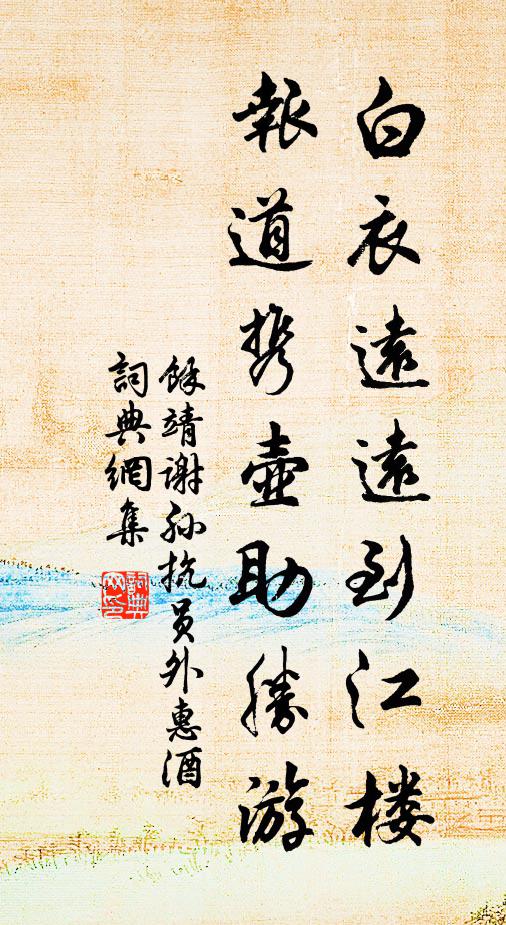 白衣遠遠到江楼
報道携壺助勝游
餘靖谢孙抗员外惠酒
詞典網集